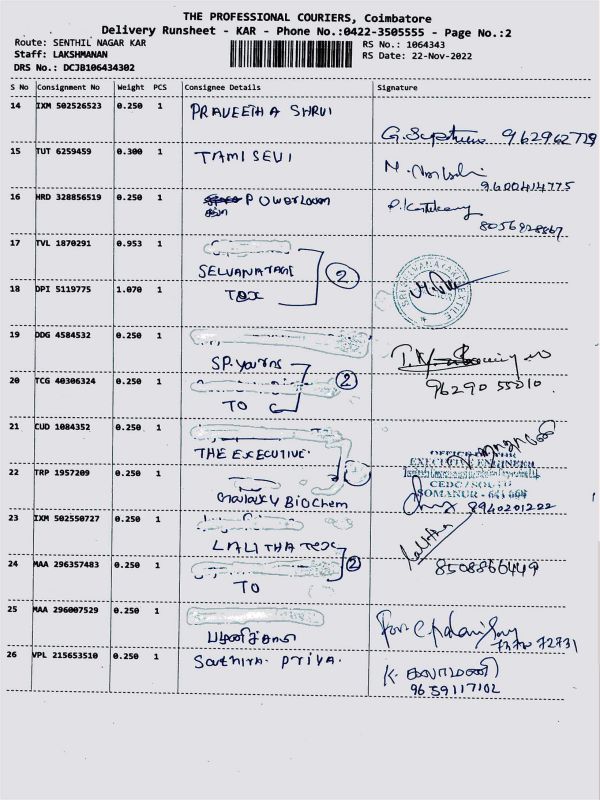 THE PROFESSIONAL COURIERS, Coimbatore
Delivery Runsheet - KAR - Phone No.:0422-3505555 - Page No.:2
Route: SENTHIL NAGAR KAR
RS No.: 1064343
Staff: LAKSHMANAN
RS Date: 22-Nov-2022
DRS No.: DCJB106434302
S No Consignment No Weight PCS Consignee Details Signature
14 IXM 502526523 0.250 1 PRAVEETHA SHRUI
9629627729
15 TUT 6259459 0.300 1 TAMISEVI
9600414775
16 HRD 328856519 0.250 1 Powerloom
8056928867
17 TVL 1870291 0.953 1
SELVANAYAGI
2
18 DPI 5119775 1.070 1
TEX
19 DDG 4584532 0.250 1
SP. Yarns
20 TCG 40306324 0.250 1
2
9629055010.
TO
21 CUD 1084352 0.250 1
THE EXECUTIVE.
OFFICE OF THE
EXECUTIVE ENGINEER
22 TRP 1957209 0.250 1
CEDC
SOMANUR - 641 668
Galaxy BIOCHEM
8940201222
23 IXM 502550727 0.250 1
LALITHA TEX
Lalitha
24 MAA 296357483 0.250 1
2
8508866449
TO
25 MAA 296007529 0.250 1
For
பழனிச்சாமி
26 VPL 215653510 0.250 1 Southira Priya.
K. கலாமணி
9659117102